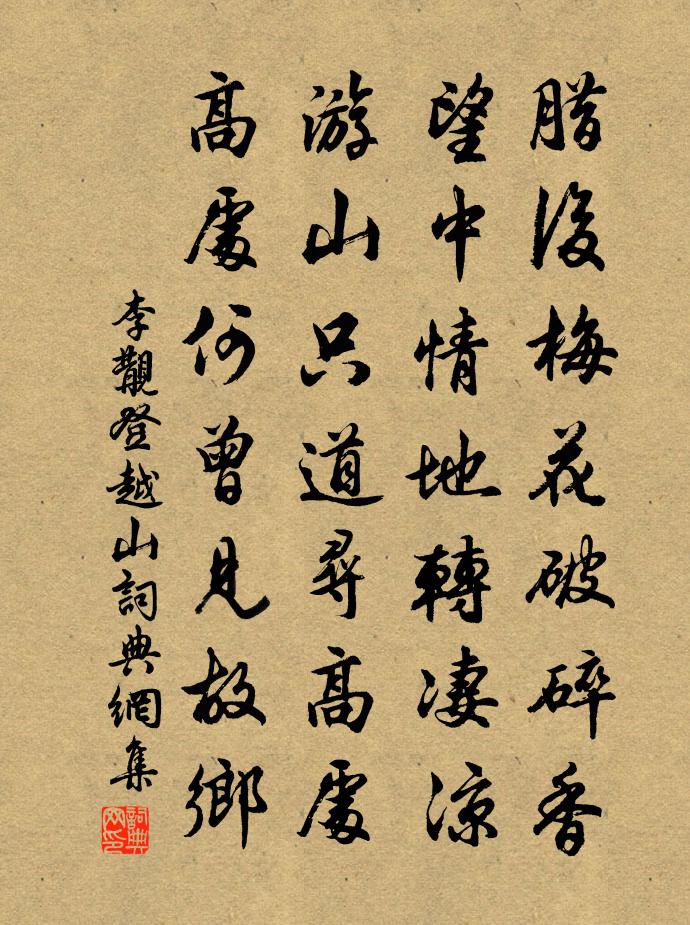 腊後梅花破碎香
望中情地轉凄涼
游山只道尋高處
高處何曾見故鄉
李觀登越山詞典網集
詞典网印